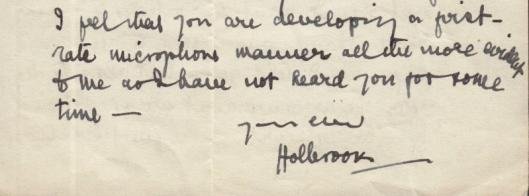 I feel that you are developing a first-
rate microphone manner all the more evident
to me as I have not heard you for some
time —
Yours ever
Holbrook